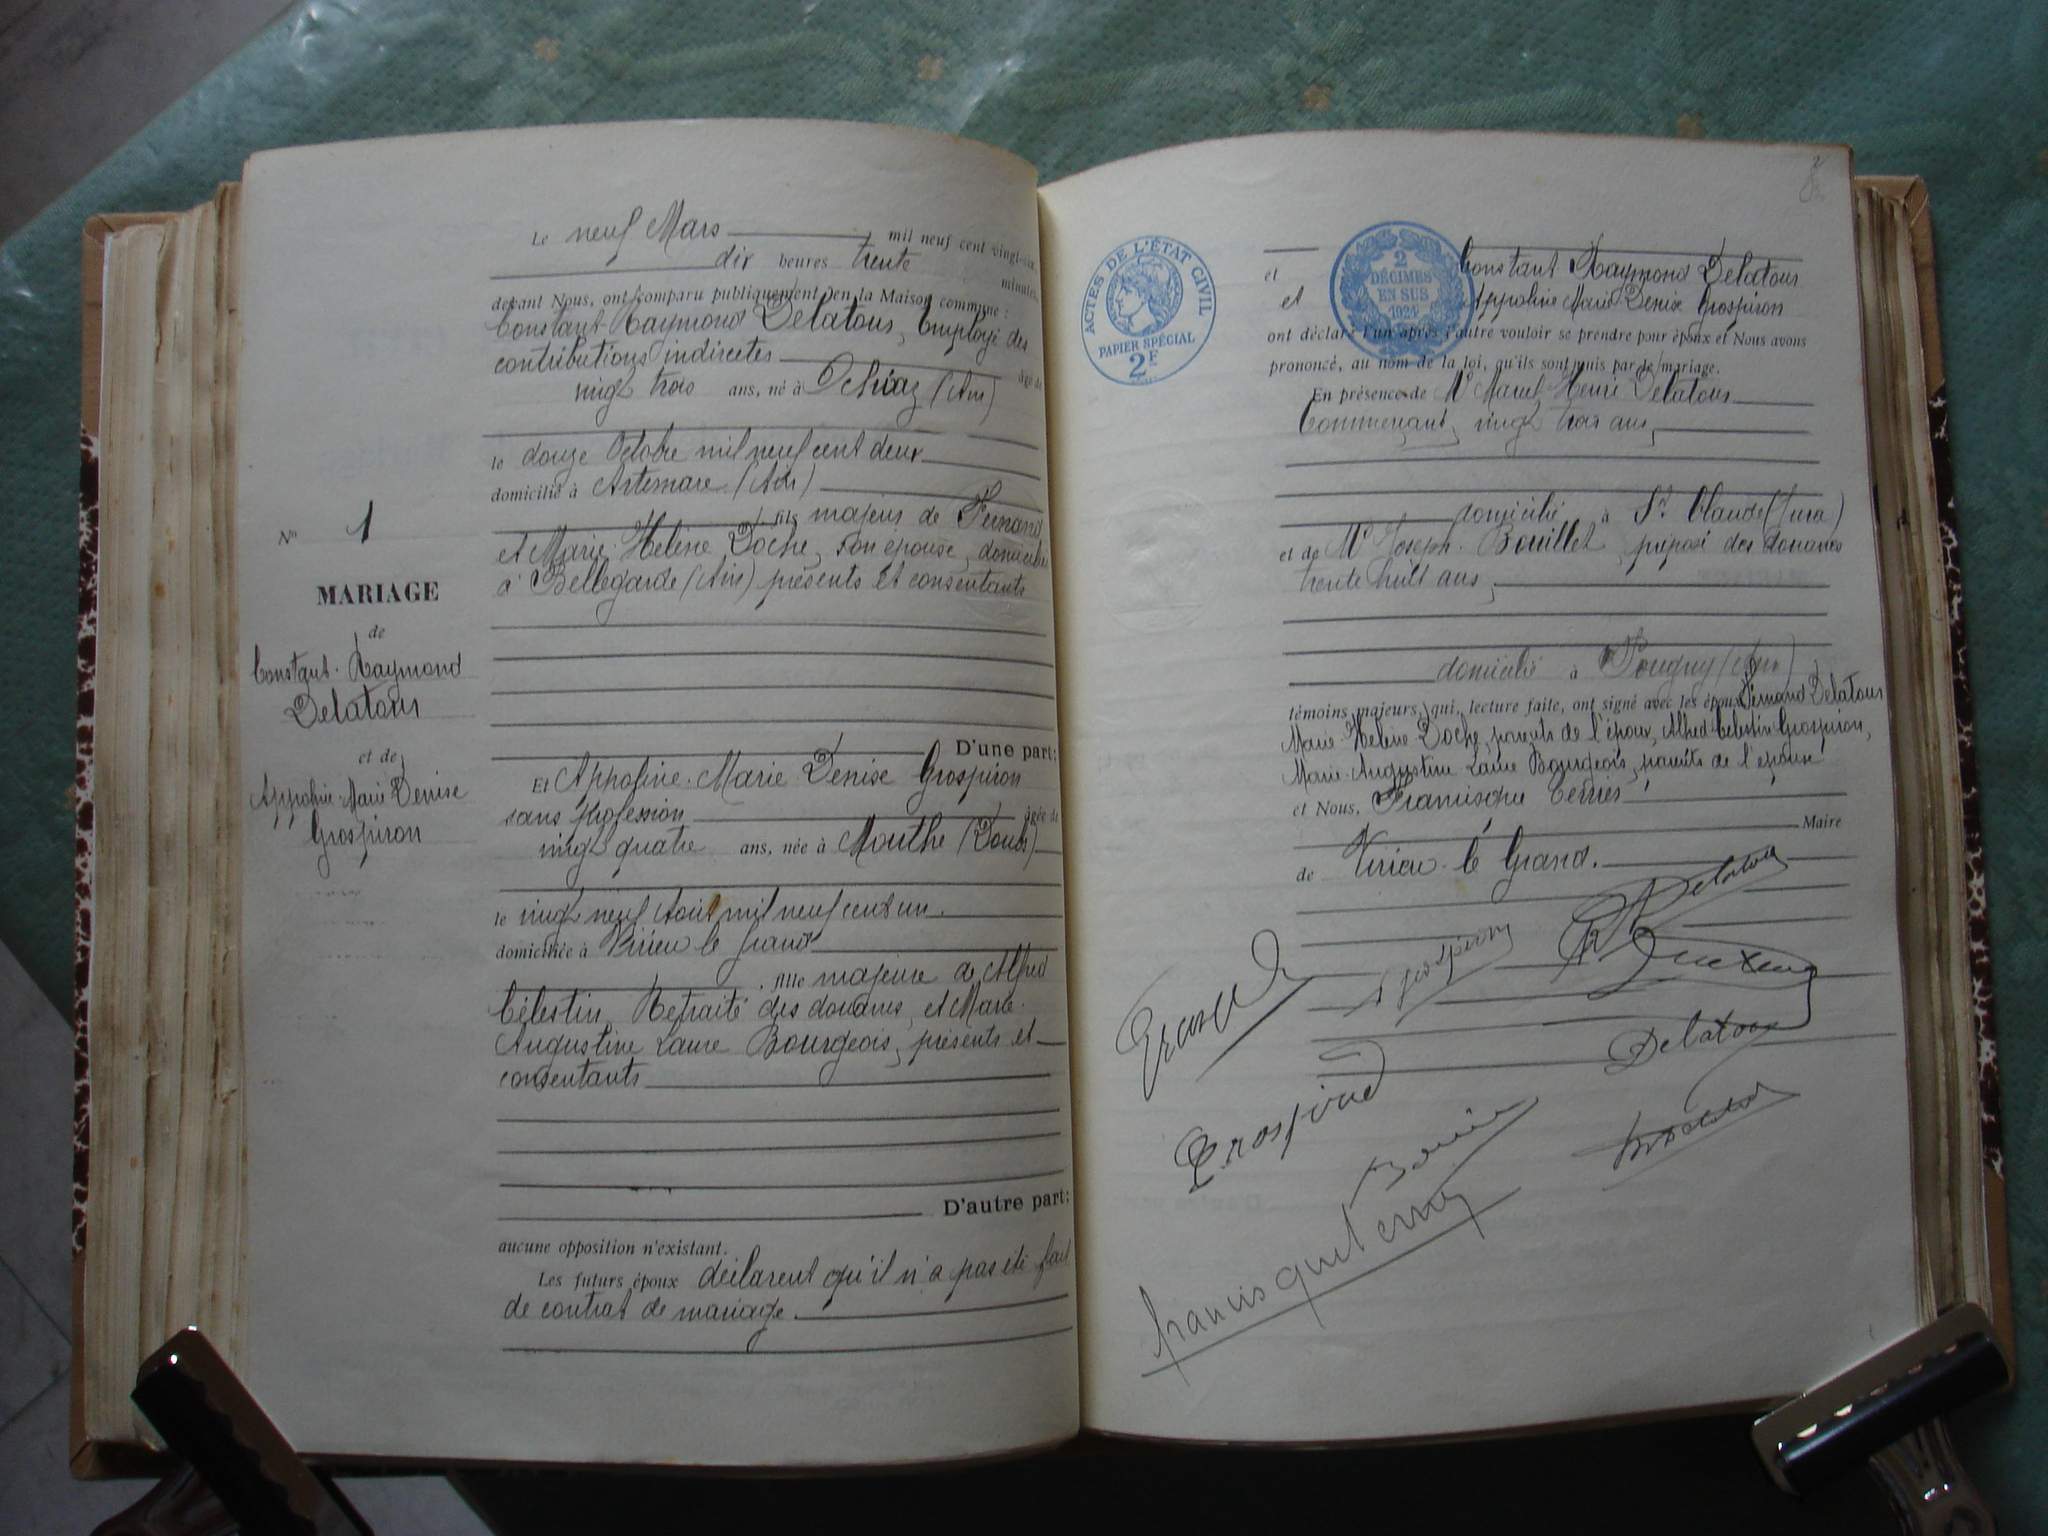 Le neuf Mars mil neuf cent vingt-six,
dix heures trente minutes,
devant Nous, ont comparu publiquement en la Maison commune :
Constant Raymond Delatour, Employé des
contributions indirectes âgé de
vingt trois ans, né à (Ain)
le douze Octobre mil neuf cent deux
domicilié à Artemare (Ain)
fils majeur de Fernand
et Marie Hélène Doche, son épouse, domiciliés
à Bellegarde (Ain) présents et consentants
N° 1
MARIAGE
de
Constant-Raymond
Delatour
et de
Appoline-Marie Denise
Grospiron
D'une part:
Et Appoline-Marie Denise Grospiron
sans profession âgée de
vingt quatre ans, née à Mouthe (Doubs)
le vingt neuf Août mil neuf cent un.
domiciliée à Virieu le Grand
, fille majeure de Alfred
Célestin, Retraité des douanes, et Marie
Augustine Laure Bourgeois, présents et
consentants
D'autre part:
aucune opposition n'existant.
Les futurs époux déclarent qu'il n'a pas été fait
de contrat de mariage
2
ACTES DE L'ÉTAT CIVIL
PAPIER SPÉCIAL
2F
2
DÉCIMES
EN SUS
1924
et Constant Raymond Delatour
et Appoline Marie Denise Grospiron
ont déclaré l'un après l'autre vouloir se prendre pour époux et Nous avons
prononcé, au nom de la loi, qu'ils sont unis par le mariage.
En présence de Mr Marcel Henri Delatour
Commerçant, vingt trois ans,
domicilié à St Claude (Jura)
et de Mr Joseph Bouillet, préposé des douanes
trente huit ans,
domicilié à Pougny (Ain)
témoins majeurs, qui, lecture faite, ont signé avec les époux Fernand Delatour
Marie-Hélène Doche, parents de l'époux, Alfred Célestin Grospiron,
Marie-Augustine Laure Bourgeois, parents de l'épouse
et Nous, Francisque Terrier
Maire
de Virieu-le Grand.
Delatour
Grospiron
Delatour
Grospiron